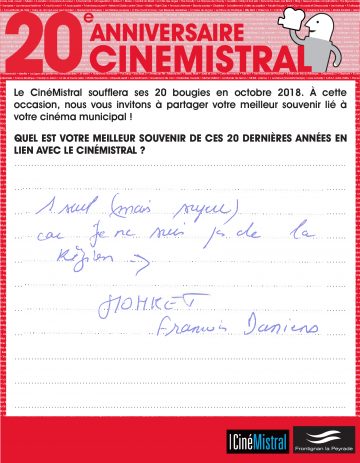 20e ANNIVERSAIRE
CINEMISTRAL
Le CinéMistral soufflera ses 20 bougies en octobre 2018. À cette
occasion, nous vous invitons à partager votre meilleur souvenir lié à
votre cinéma municipal !
QUEL EST VOTRE MEILLEUR SOUVENIR DE CES 20 DERNIÈRES ANNÉES EN
LIEN AVEC LE CINÉMISTRAL ?
1 seul (mais
car Je ne suis pas de la
Région
Francis
CinéMistral
Frontignan la Peyrade